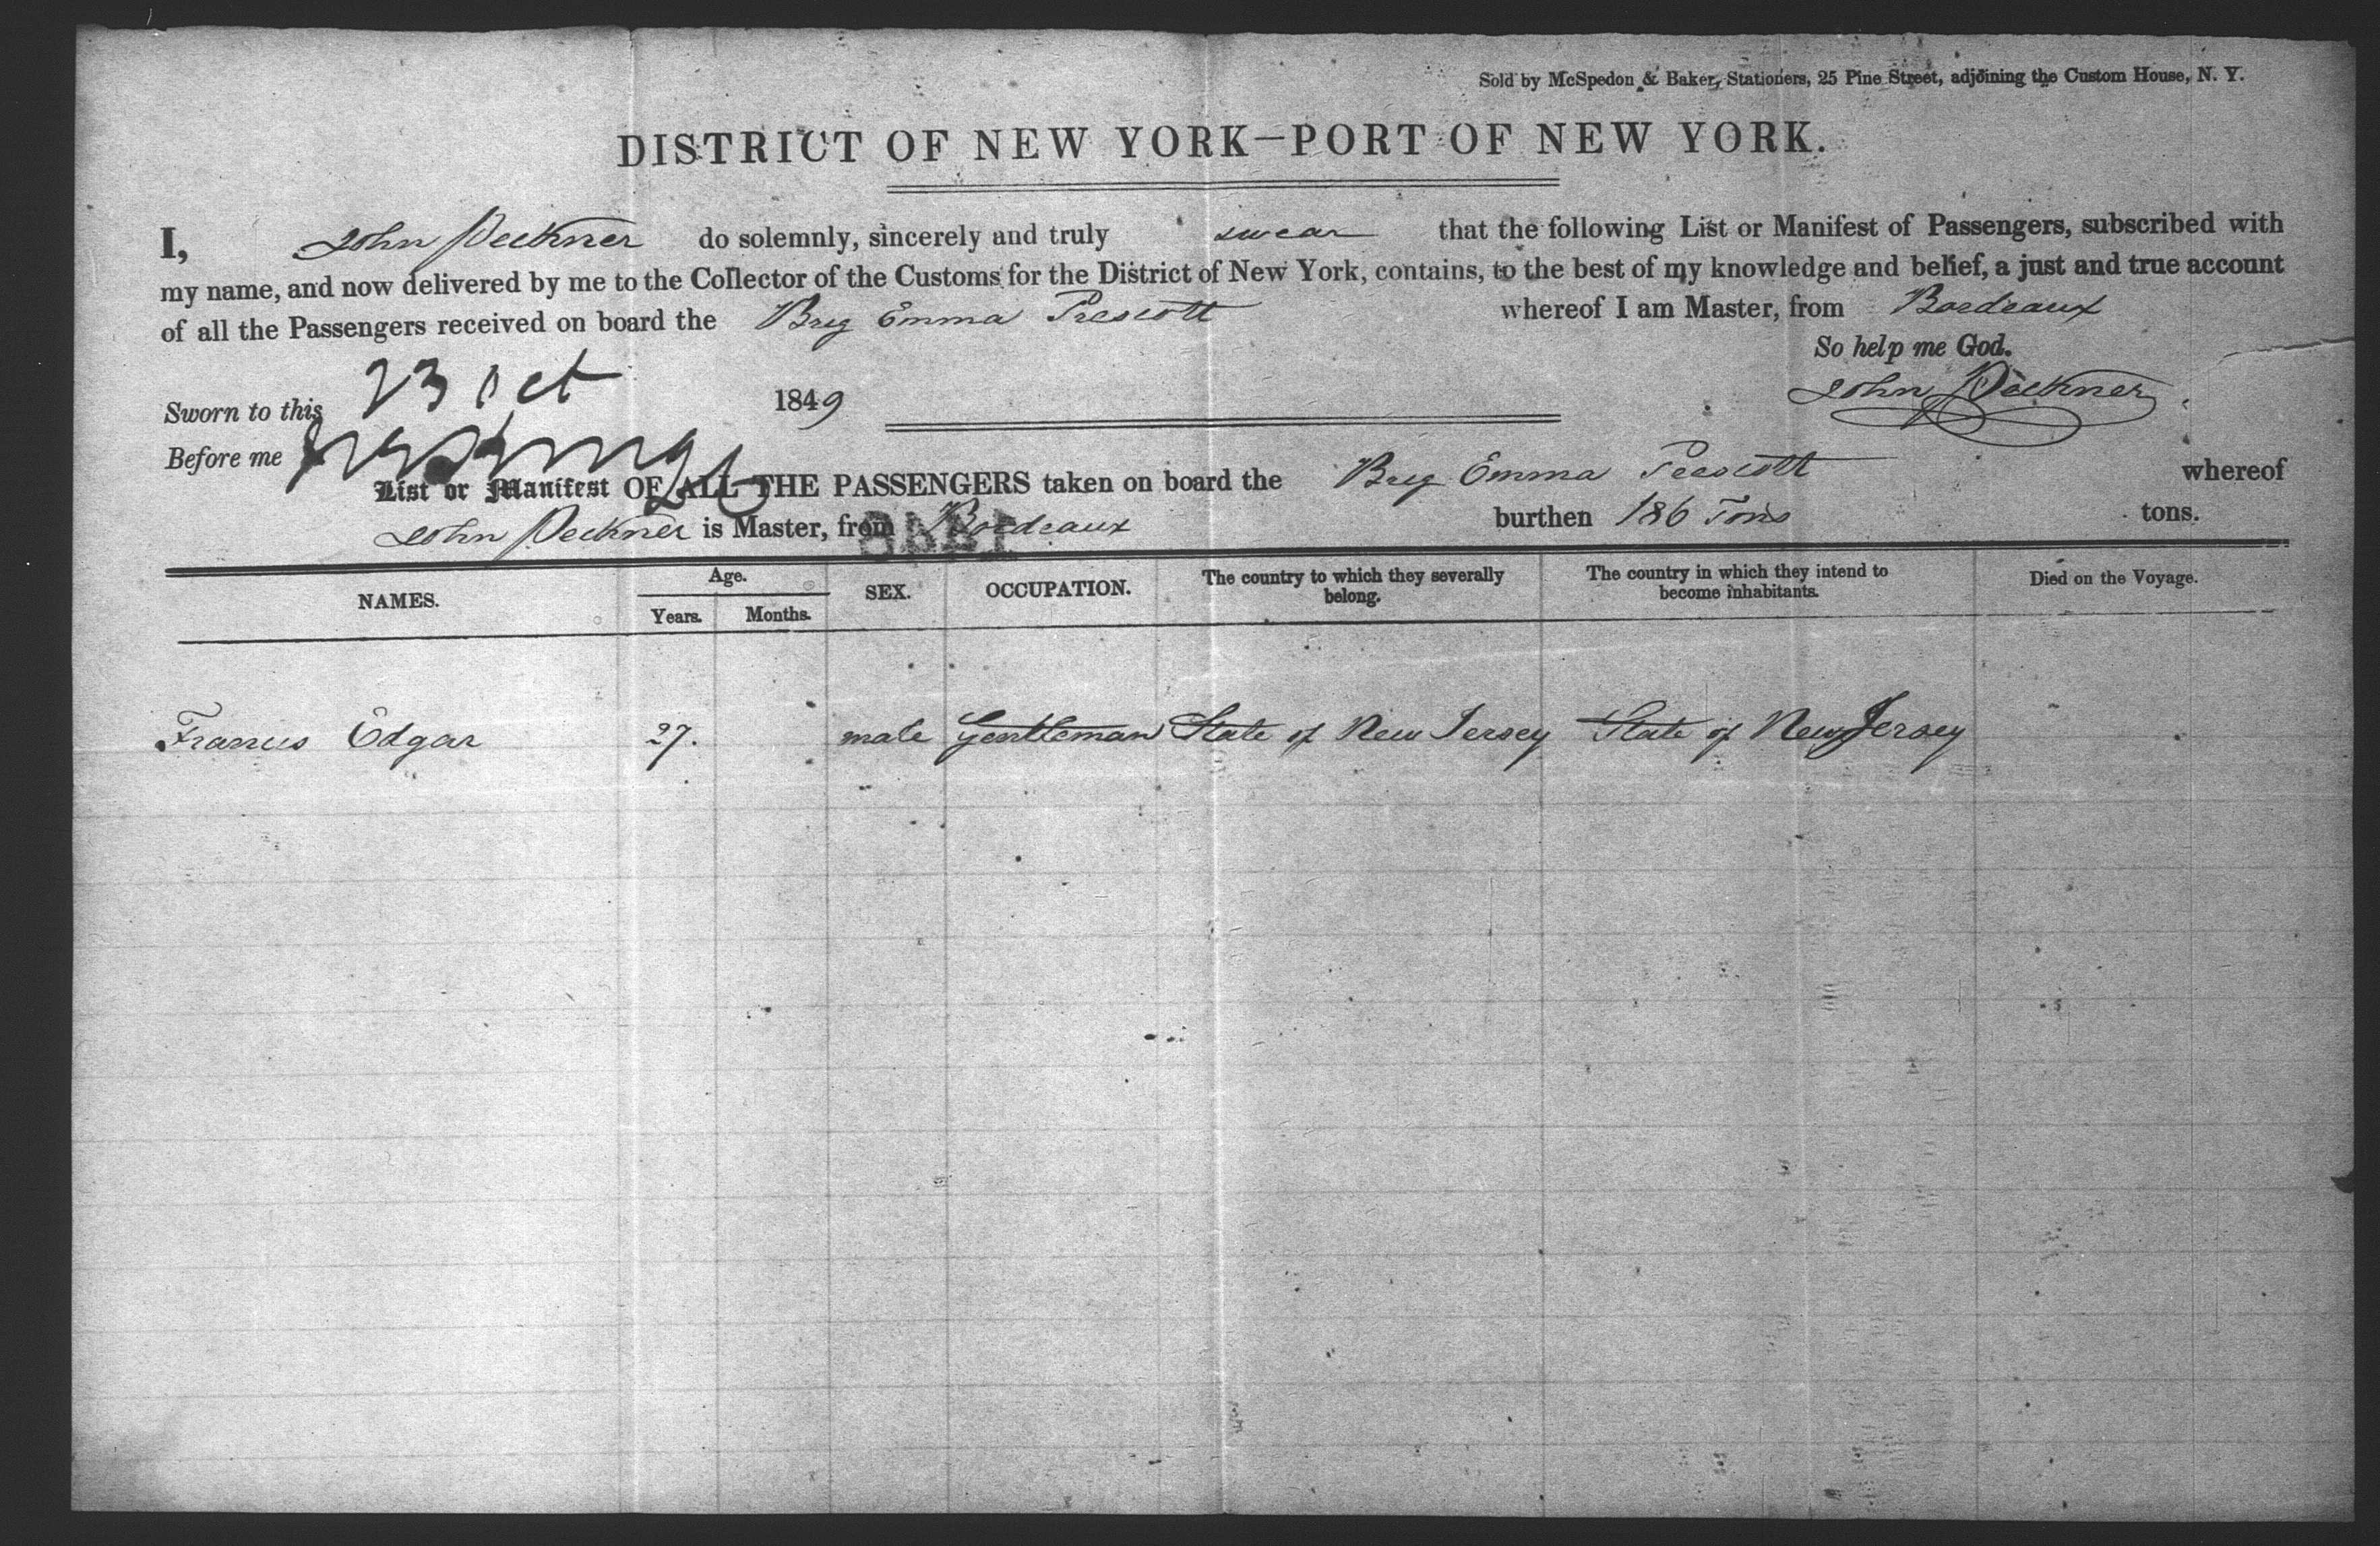 Sold by McSpedon & Baker, Stationers, 25 Pine Street, adjoining the Custom House, N. Y.
DISTRICT OF NEW YORK—PORT OF NEW YORK.
I, John Peckner do solemnly, sincerely and truly swear that the following List or Manifest of Passengers, subscribed with
my name, and now delivered by me to the Collector of the Customs for the District of New York, contains, to the best of my knowledge and belief, a just and true account
of all the Passengers received on board the Brig Emma Prescott whereof I am Master, from Bordeaux
So help me God.
Sworn to this 23 Oct 1849 John Peckner
Before me
List or Manifest OF ALL THE PASSENGERS taken on board the Brig Emma Prescott whereof
John Peckner is Master, from Bordeaux burthen 186 Tons tons.
NAMES. Age. Years. Months. SEX. OCCUPATION. The country to which they severally belong. The country in which they intend to become inhabitants. Died on the Voyage.
Francis Edgar 27. male Gentleman State of New Jersey State of New Jersey